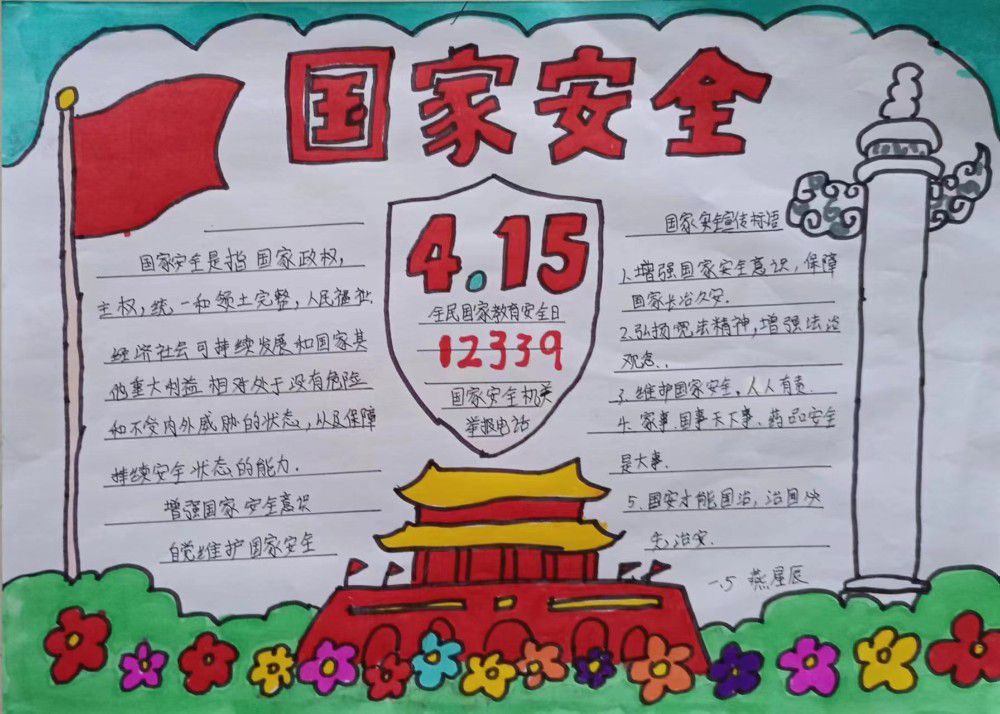 国家安全
国家安全是指国家政权，
主权，统一和领土完整，人民福祉
经济社会可持续发展和国家其
他重大利益相对处于没有危险
和不受内外威胁的状态，以及保障
持续安全状态的能力．
增强国家安全意识
自觉维护国家安全
4.15
全民国家教育安全日
12339
国家安全机关
举报电话
国家安全宣传标语
1.增强国家安全意识，保障
国家长治久安．
2.弘扬宪法精神，增强法治
观念．．
3.维护国家安全，人人有责．
4.家事．国事天下事、药品安全
是大事．
5.国安才能国治，治国必
先治安．
一.5 燕星辰